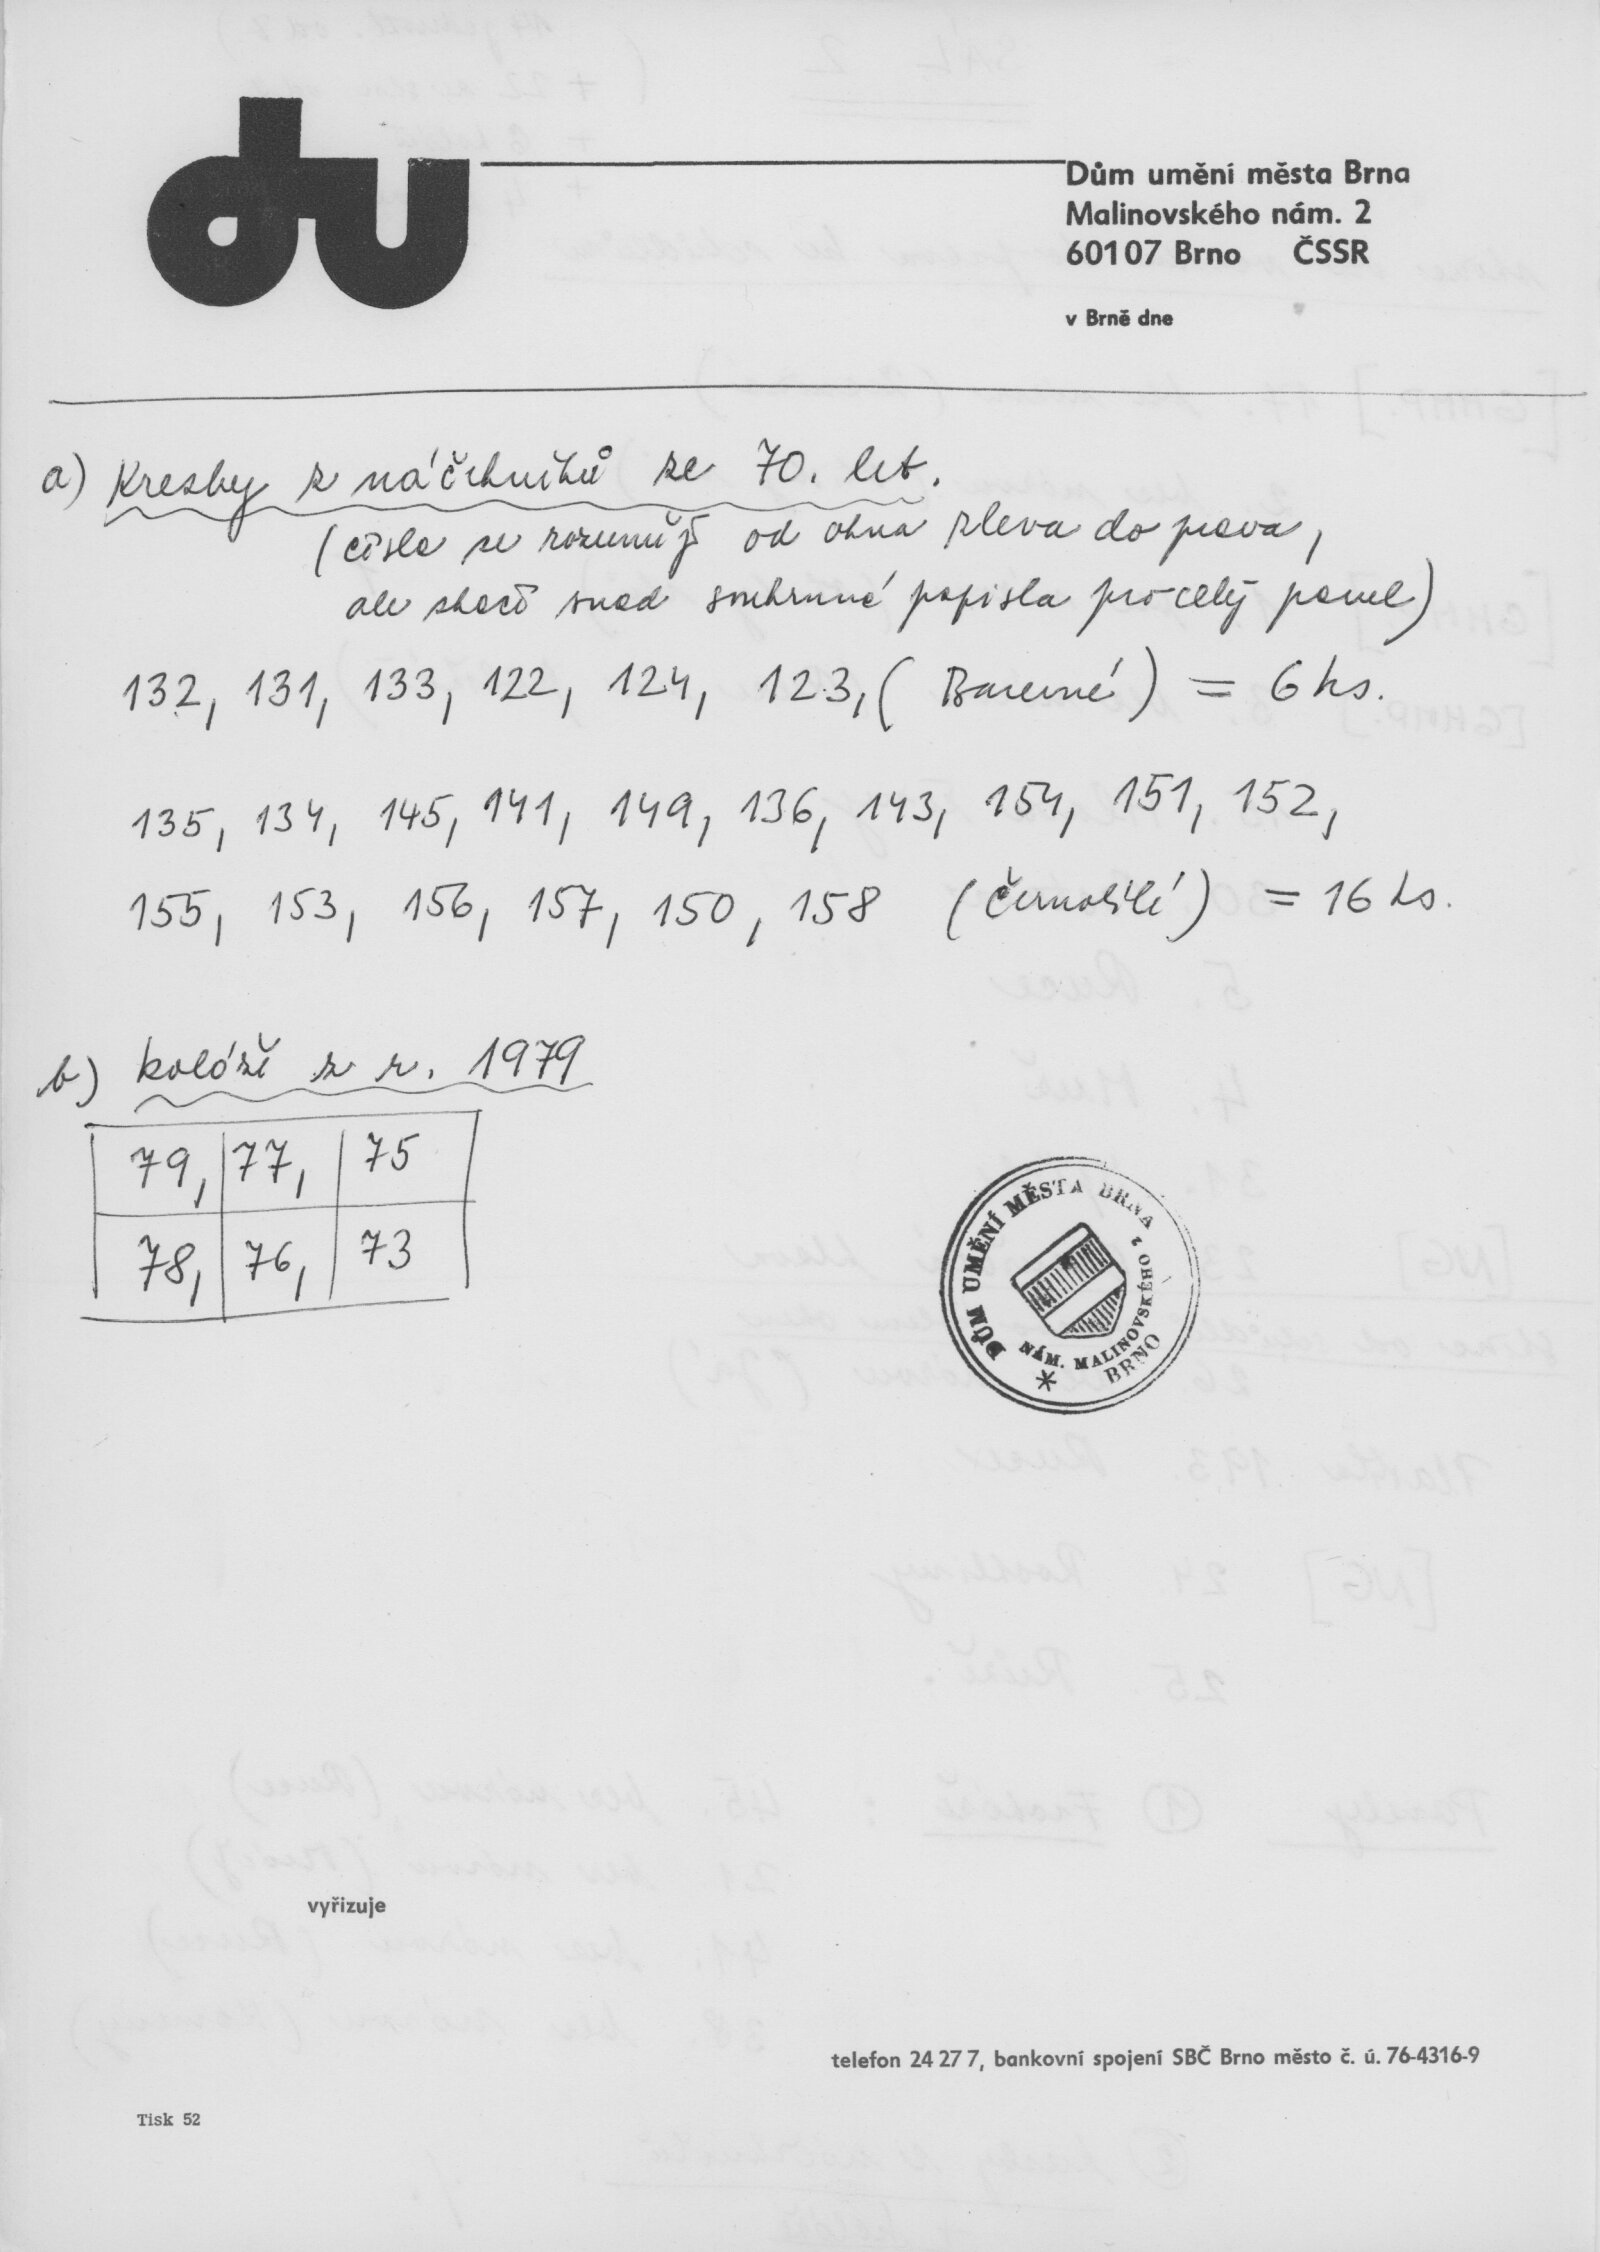 du
Dům umění města Brna
Malinovského nám. 2
60107 Brno ČSSR
v Brně dne
a) Kresby z náčrtníků ze 70. let.
(čísla se rozumějí od okna zleva do prava,
ale stačí snad souhrnná popiska pro celý panel)
132, 131, 133, 122, 124, 123, (Barevné) = 6 ks.
135, 134, 145, 141, 149, 136, 143, 154, 151, 152,
155, 153, 156, 157, 150, 158 (černobílé) = 16 ks.
b) koláže z r. 1979
79, 77, 75
78, 76, 73
DŮM UMĚNÍ MĚSTA BRNA
NÁM. MALINOVSKÉHO 2
BRNO
vyřizuje
telefon 24 27 7, bankovní spojení SBČ Brno město č. ú. 76-4316-9
Tisk 52